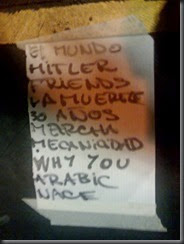 EL MUNDO
HITLER
FRIENDS
LA MUERTE
30 AÑOS
MARCHA
MECANICIDAD
WHY YOU
ARABIC
NACE